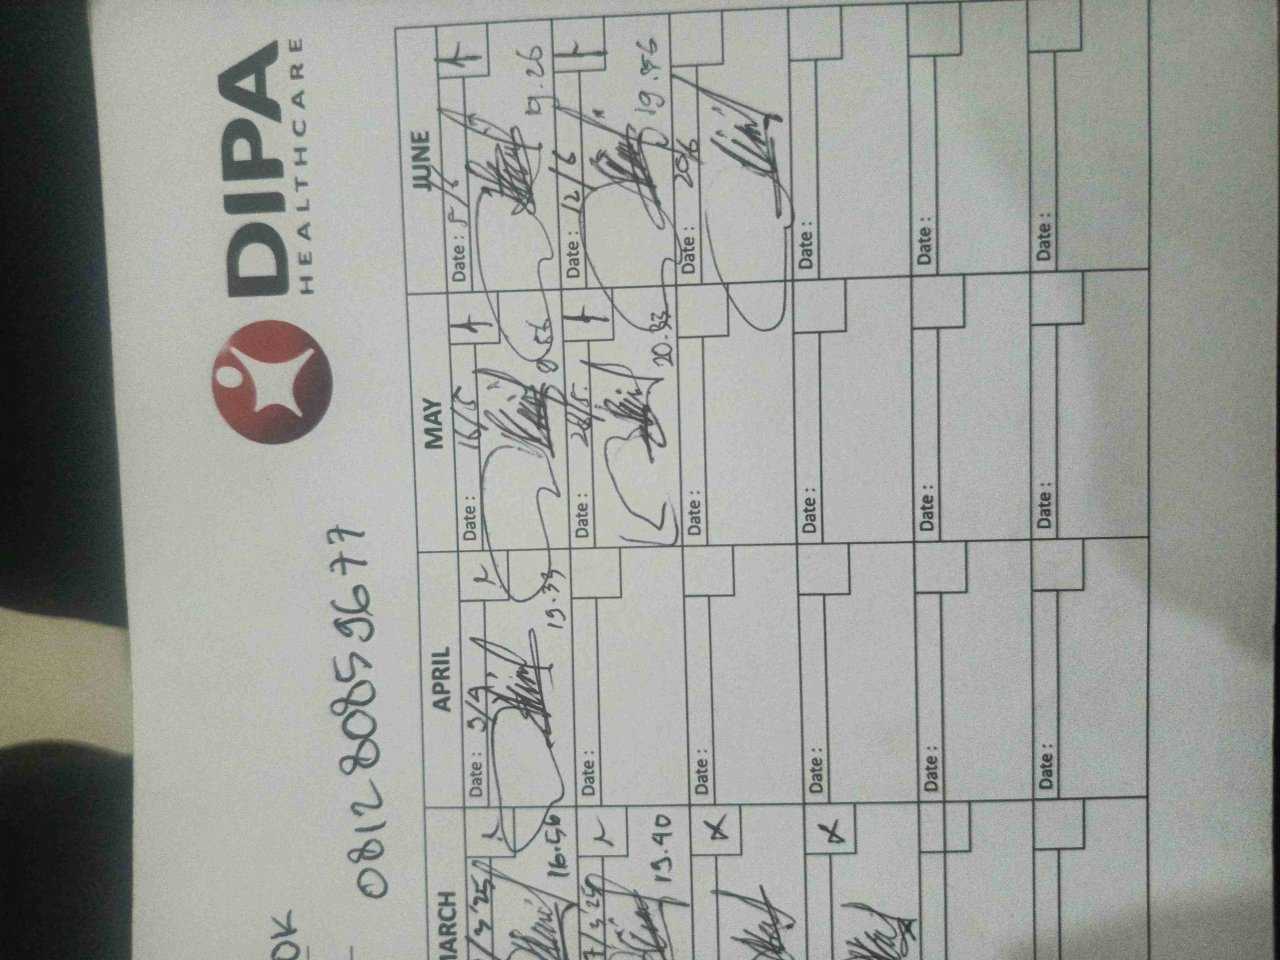 OK
081280859677
DIPA
HEALTHCARE
MARCH APRIL MAY JUNE
/3'25 Date : 3/4 Date : 16/5 Date : 5/6
16.56 19.33 19.26
7/3'25 Date : Date : 26/5 Date : 12/6
19.40 20.33 19.46
Date : Date : Date : 20/6
Date : Date : Date :
Date : Date : Date :
Date : Date : Date :